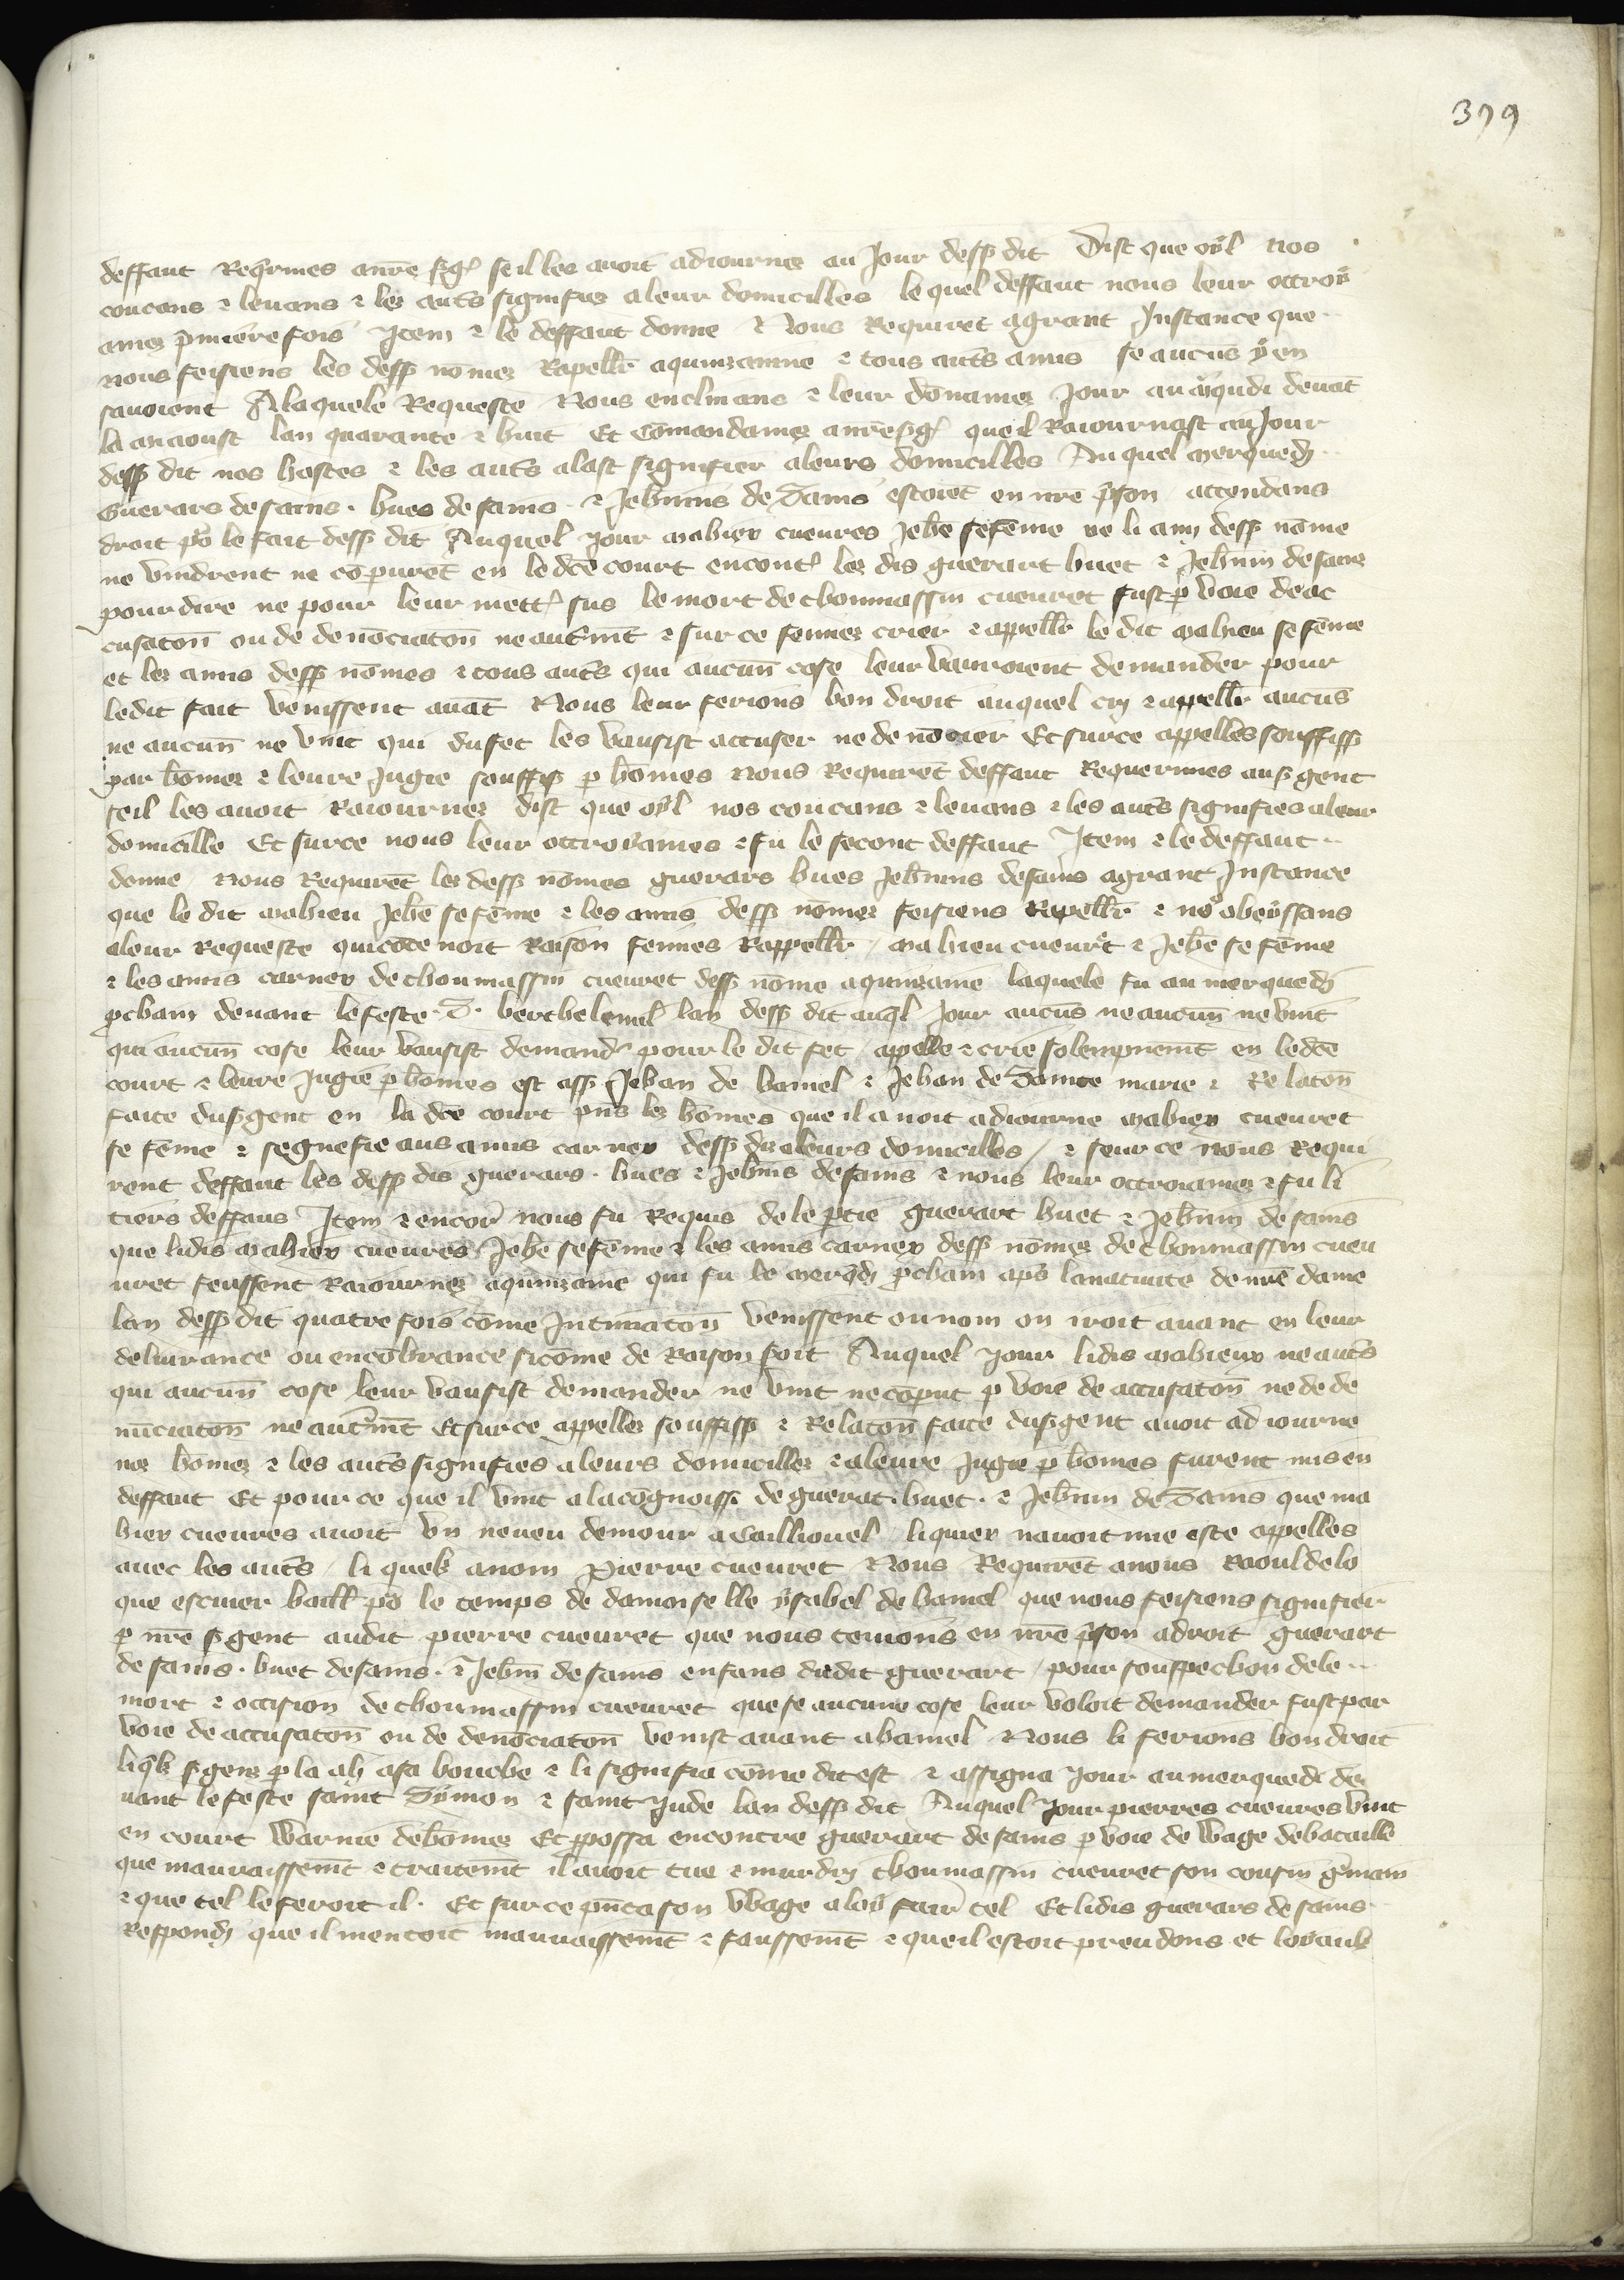 399
deffaut Reqrimes a nre sg se il les avoit adiournez au Jour dessp dit Dist que oyl nos
coucans & levans & les auts signifiez a leur domicilles le quel deffaut nous leur ottroy
amez pmiere fois Item & le deffaut donne & Nous Requiret a grant Instance que
nous feisiens les dessp nomez Rapeller a quinzainne & tous auts amis se aucus y en
savoient A laquele Requeste Nous enclinans & leur donnames Jour au mqudi devat
la my aoust lan quarante & huit Et comandamez a nre sg que il Raiournast au Jour
dessp dit nos hostes & les auts alast signifier a leurs domicilles Auquel merquedi
Guerars de sains . hues de sains . & Jehnins de Sains estoiet en nre pson attendans
droit po le fait dessp dit Auquel Jour mahiex cueures Jehe se feme ne li ami dessp nome
ne vindrent ne coparet en le dce court encont les dis guerart huet & Jehnin de sains
pour dire ne pour leur mett sus le mort de thoumassin cueuret fust p voie de ac
cusaton ou de denonciaton ne autmt & sur ce feimez crier & appeller le dit mahieu se feme
et les amis dessp nomes & tous auts qui aucun cose leur vauroient demander pour
le dit fait venissent avat Nous leur ferions bon droit auquel cry & appeller aucus
ne aucun ne vint qui du fet les vausist accuser ne denoncier Et sur ce appelles souffiss
par homez & leure Jugie souffiss p homes Nous Requiret deffaut Requerimes au sgent
se il les avoit Raiournez dist que oyl nos coucans & levans & les auts signifies a leur
domicille Et sur ce nous leur ottroyames & fu le secont deffaut Item & le deffaut
donne Nous Requiret les dessp nomes guerars hues Jehnins de sains a grant Instance
que le dit mahieu Jehe se feme & les amis dessp nomez feisiens Rapeller & no obeyssans
a leur Requeste qui cotenoit Raison feimes Rappeller mahieu cueuret & Jehe se feme
& les amis carnex de thoumassin cueuret dessp nome a quinzaine laquele fu au merquedi
pchain devant le feste S. berthelemel lan dessp dit auql Jour aucus ne aucun ne vint
qui aucun cose leur vausist demander pour le dit fet / appelle & crie solempnemt en le dce
court & leure Jugie p homes est assp Jehan de hamel & Jehan de Sainte marie & Relaton
faite du sgent en la dce court pns les homes que il avoit adiourne mahiex cueuret
se feme & segnefie aus amis carnex dessp dis a leurs domicilles / & seur ce nous Requi
rent deffaut les dessp dis guerars . hues & Jehnis de sains & nous leur ottroiamez & fu li
tiers deffaus Item & encor nous fu Requis de le ptie guerart huet & Jehnin de sains
que li dis mahiex cueures Jehe se feme & les amis carnex dessp nomez de thoumassin cueu
uret feussent Raiournez a quinzaine qui fu le merqdi pchain aps la nativite de nre dame
lan dessp dit quatre fois come Intimaton venissent ou non on iroit avant en leur
delivrance ou encobrance si come de Raison soit Auquel Jour li dis mahiex ne auts
qui aucun cose leur vausist demander ne vint ne coparut p voie de accusaton ne de de
nuciaton ne autmt Et sur ce appelles souffiss & Relaton faite du sgent avoit adiourne
nos homez & les auts signifies a leurs domicillez & a leure Jugie p homes furent mis en
deffaut Et pour ce que il vint a la cognoiss de guerart . huet . & Jehnin de Sains que ma
hiex cueures avoit un neveu demour a Caillouel li quiex navoit mie este appelles
avec les auts li quels a nom Pierre cueuret Nous Requiret a nous Raoul de lo
que escuier baill po le temps de damoiselle ysabel de hamel que nous feisiens signifier
p nre sgent audit pierre cueuret que nous tenions en nre pson a droit guerart
de sains . huet de sains . & Jehin de sains enfans dudit guerart / pour souppechon de le
mort & occision de thoumassin cueuret que se aucune cose leur voloit demander fust par
voie de accusaton ou de denonciaton venist avant a hamel Nous li ferions bon droit
li qls sgens p la a sa bouche & li signifia come dit est & assigna Jour au merquedi de
vant le feste saint Symon & saint Jude lan dessp dit Auquel Jour pierres cueures vint
en court warnie de homez Et pposa encontre guerart de sains p voie de wage de bataille
que mauvaissemt & traitemt il avoit tue & murdry thoumassin cueuret son cousin gmain
& que tel le feroit il . Et sur ce pnta son wage a loy fair tel Et li dis guerars de sains
Respondi que il mentoit mauvaissemt & faussemt & que il estoit preudons et loyauls